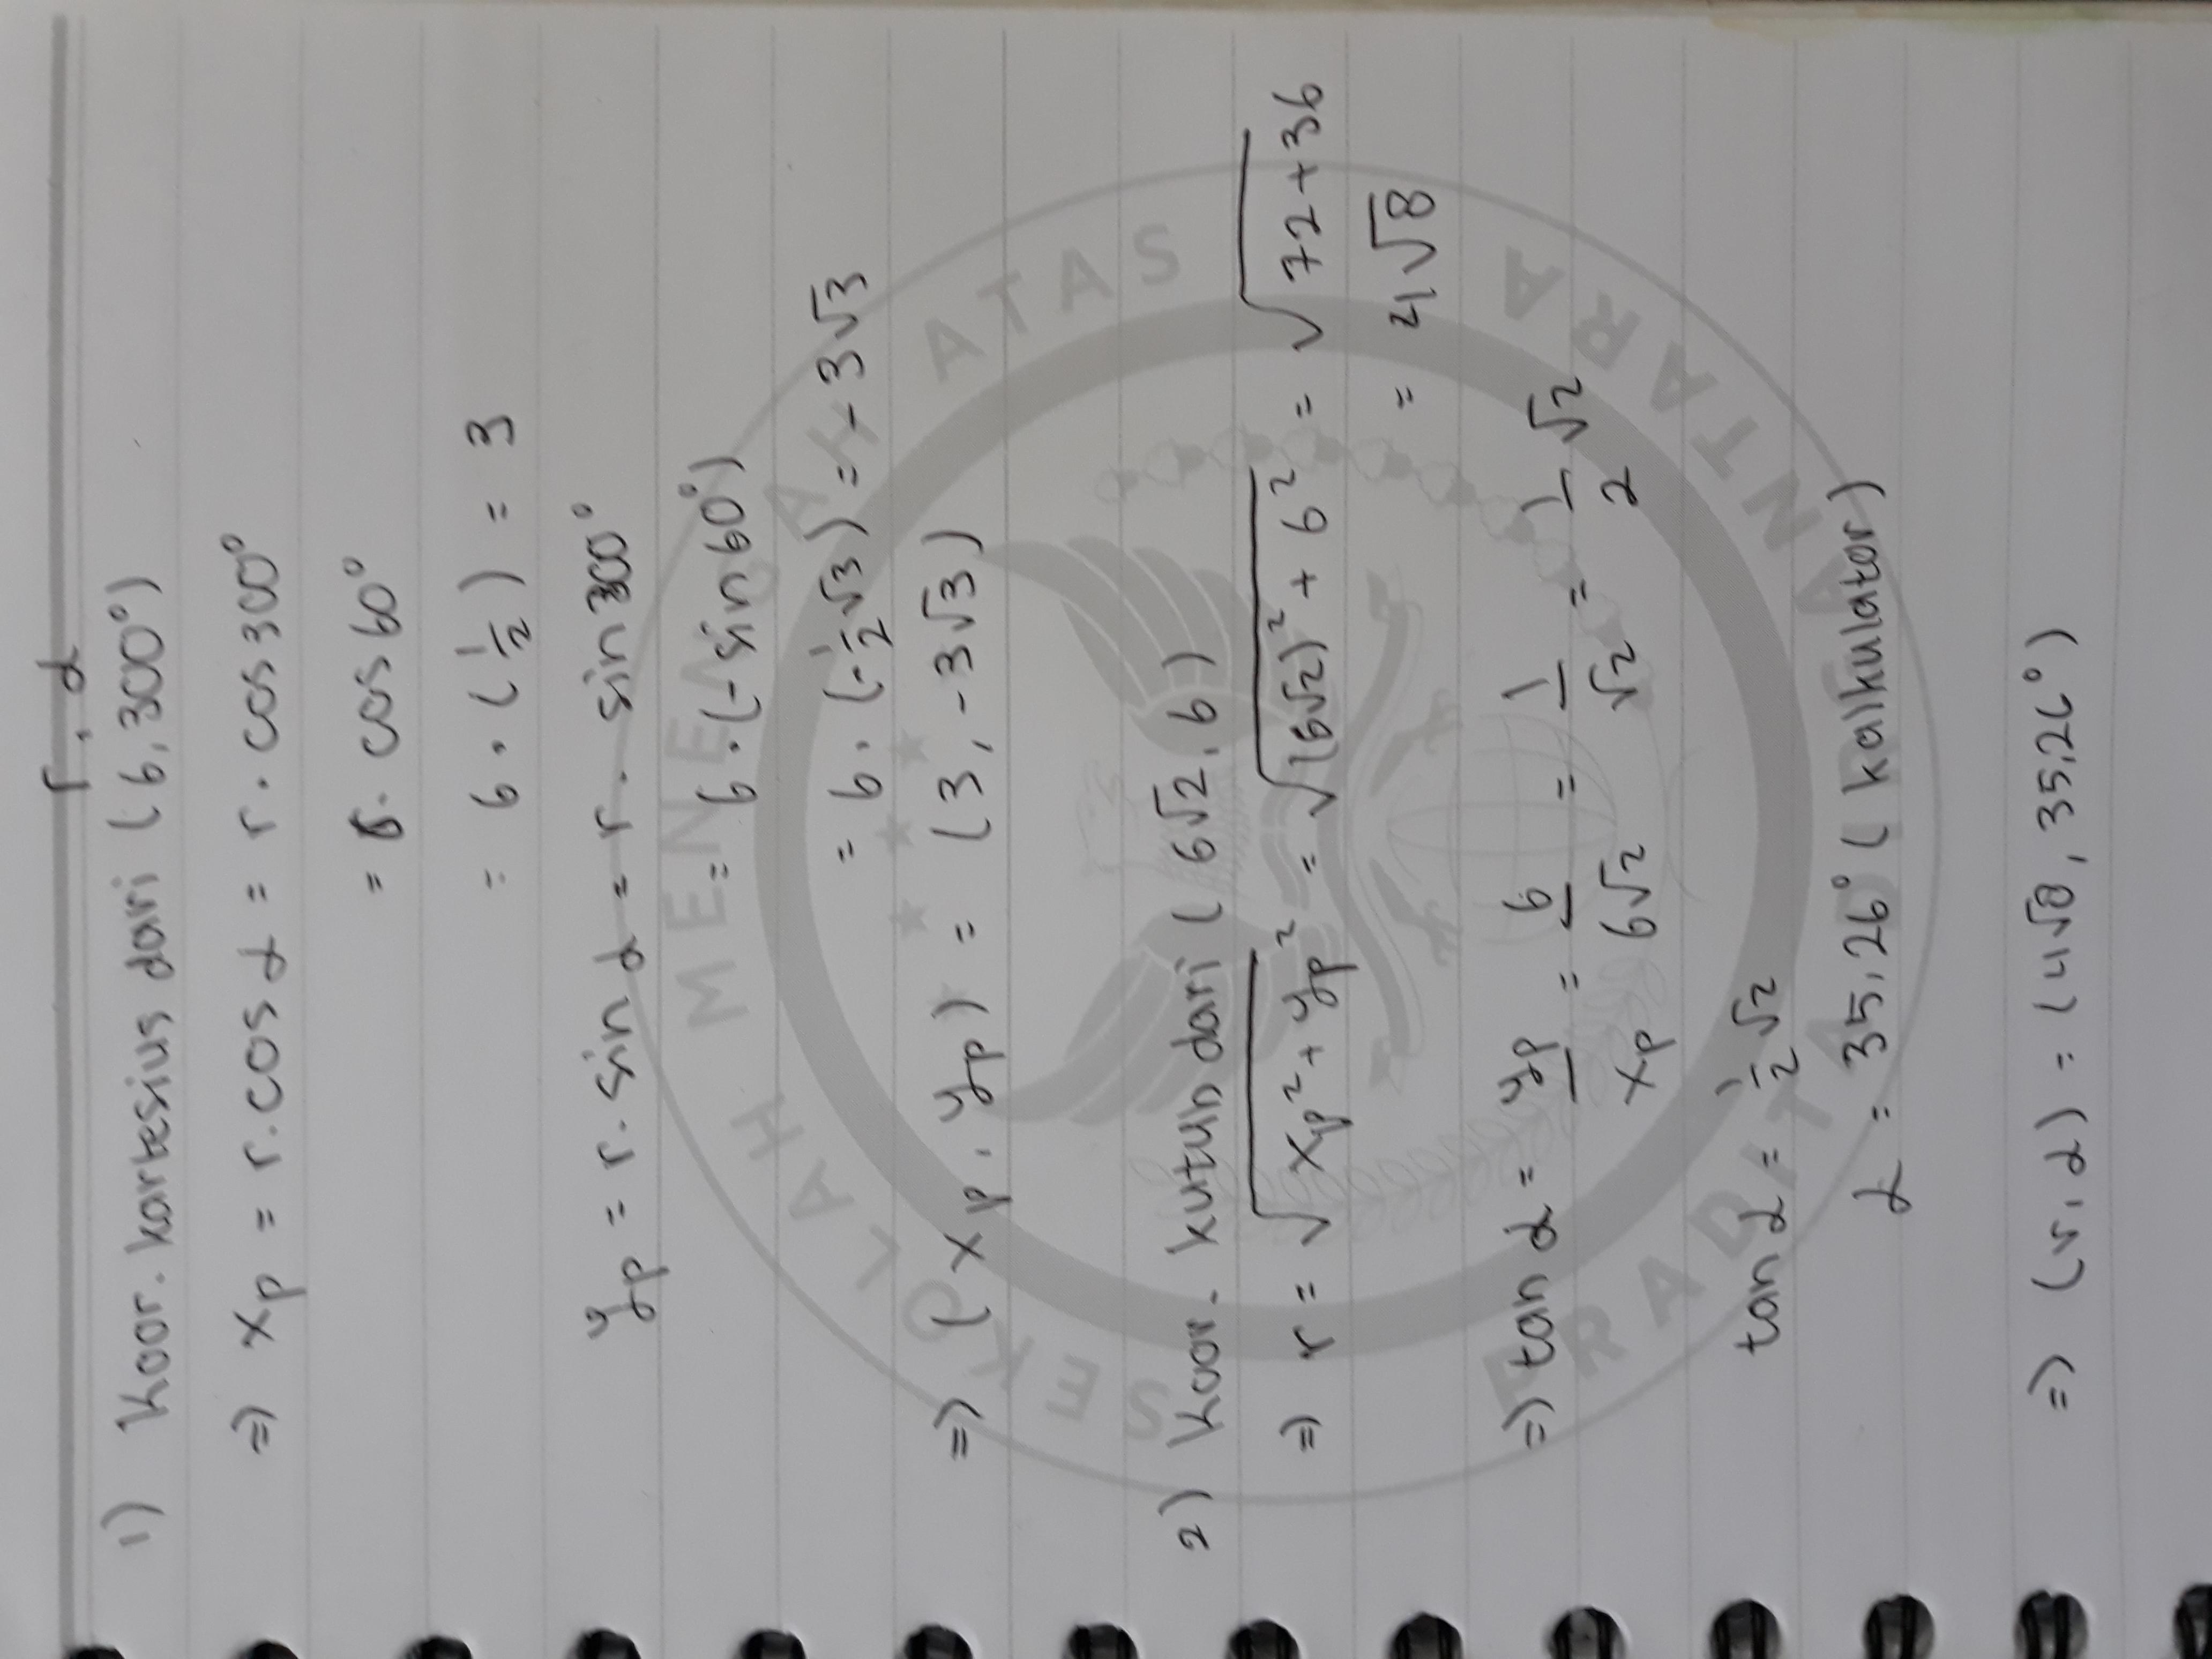 r . α
1) Koor. kartesius dari (6,300°)
=> xp = r.cos α = r. cos 300°
= 6. cos 60°
= 6 . (1/2) = 3
yp = r. sin α = r. sin 300°
= 6 .(-sin 60°)
= 6 . (-1/2√3) = -3√3
=> (xp, yp) = (3, -3√3)
2) Koor. kutub dari (6√2, 6)
=> r = √xp² + yp² = √(6√2)² + 6² = √72+36
= 4√8
=> tan α = yp/xp = 6/6√2 = 1/√2 = 1/2 √2
tan α = 1/2 √2
α = 35,26° ( kalkulator)
=> (r,α) = (4√8, 35,26°)
SEKOLAH MENENGAH ATAS
PRADITA DIRGANTARA